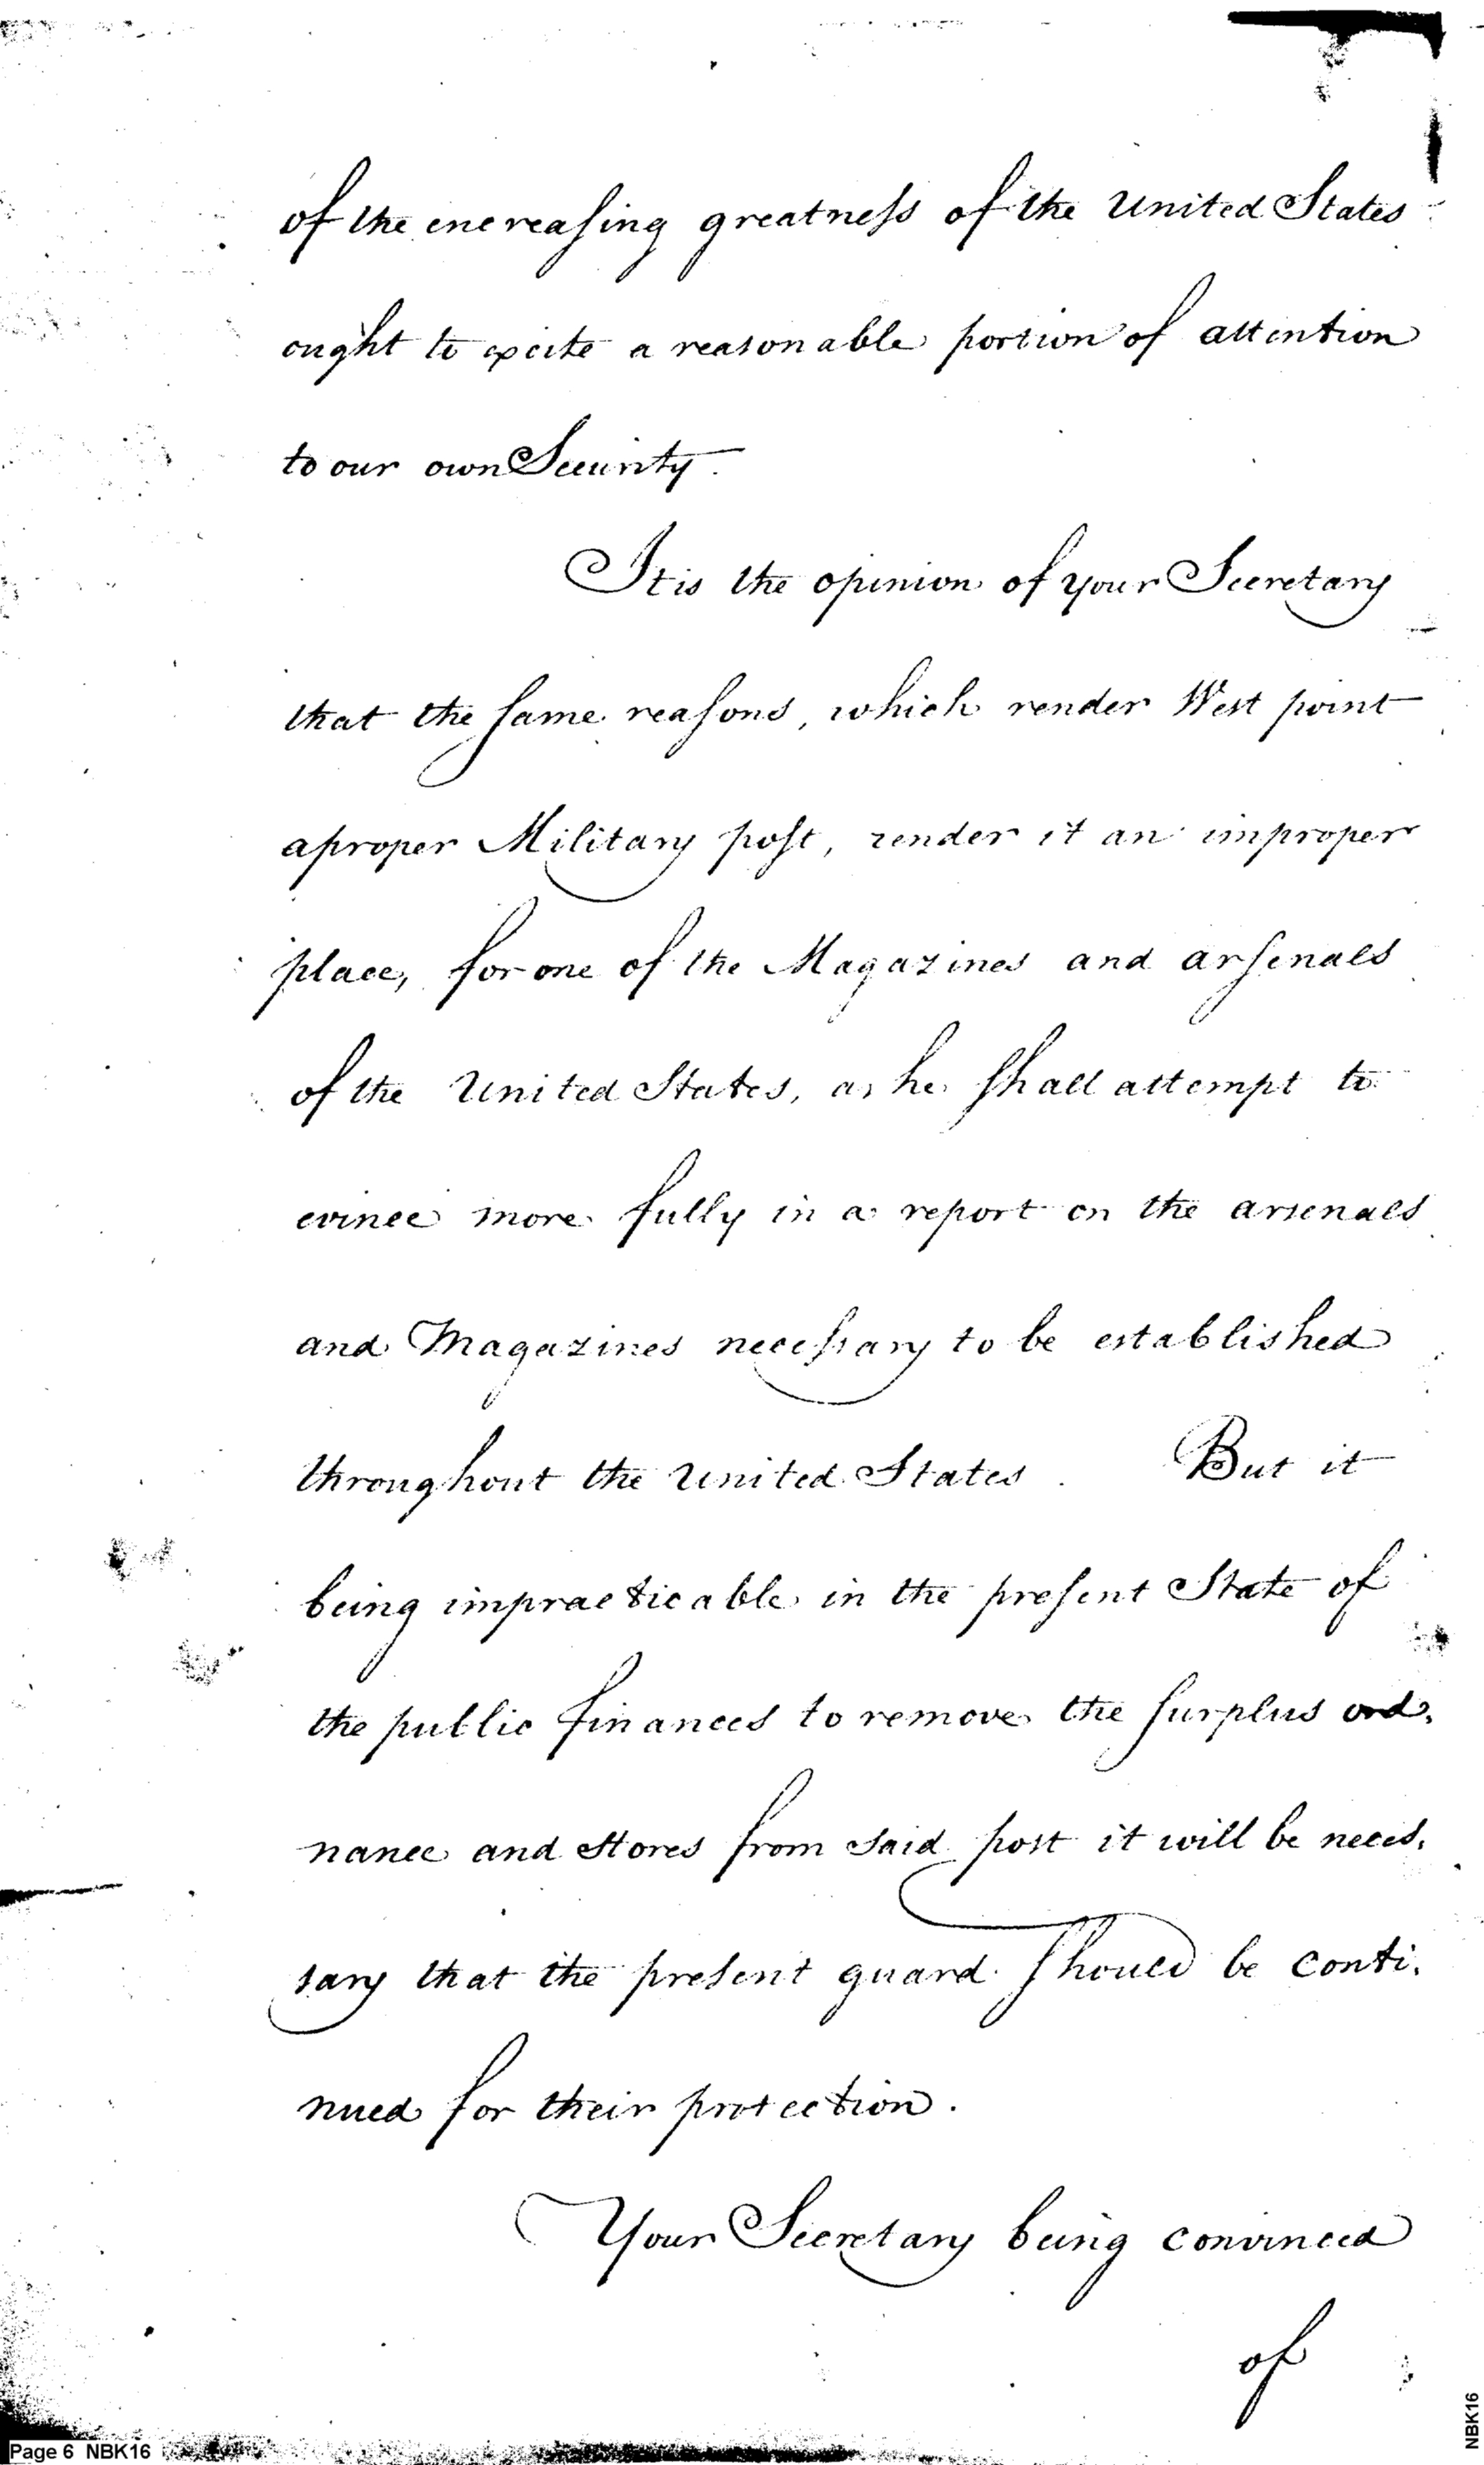 of the encreasing greatness of the United States
ought to excite a reasonable portion of attention
to our own Security.
It is the opinion of your Secretary
that the same reasons, which render West point
a proper Military post, render it an improper
place, for one of the Magazines and arsenals
of the United States, as he shall attempt to
evince more fully in a report on the arsenals
and Magazines necessary to be established
throughout the United States. But it
being impracticable in the present State of
the public finances to remove the surplus ord,
nance and Stores from said post it will be neces,
sary that the present guard should be conti,
nued for their protection.
Your Secretary being convinced
of
Page 6 NBK16
NBK16